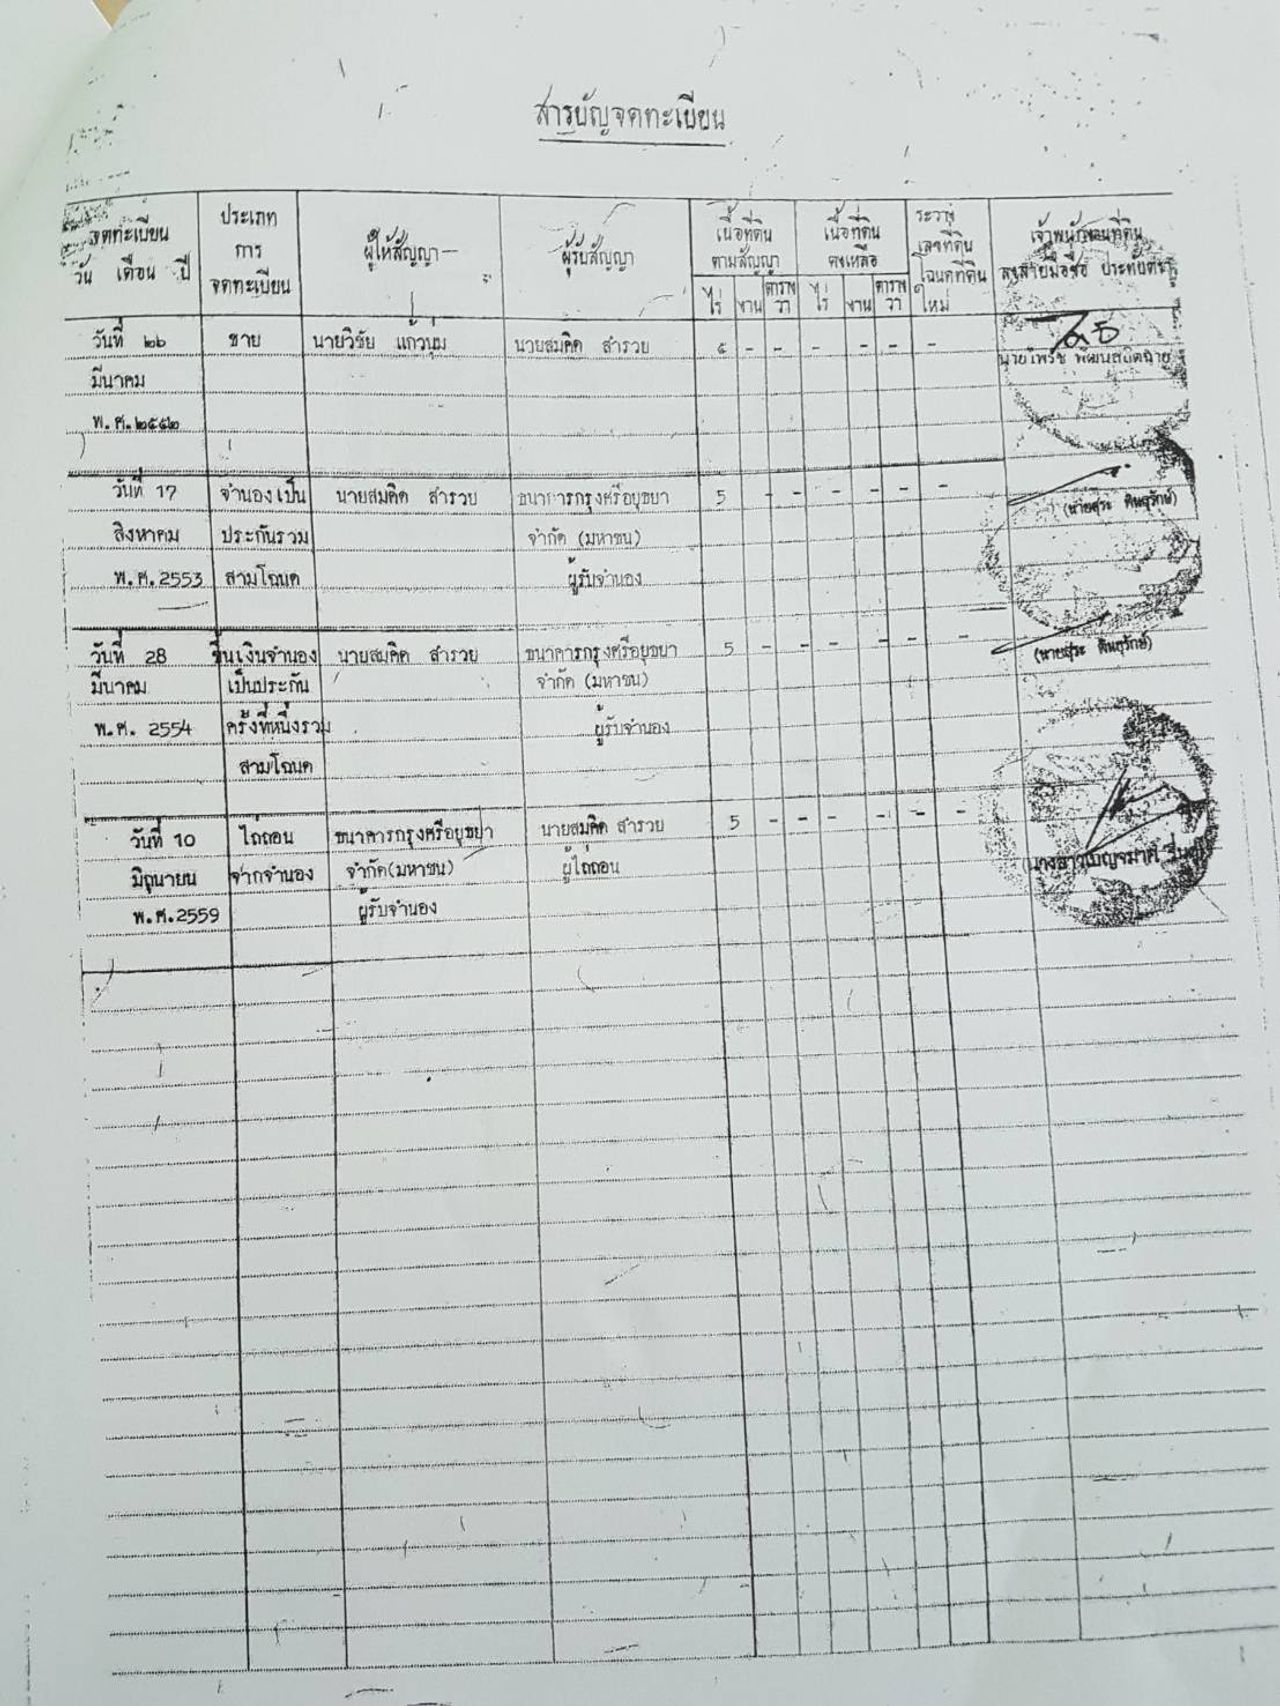 สารบัญจดทะเบียน
จดทะเบียน
วัน เดือน ปี
ประเภท
การ
จดทะเบียน
ผู้ให้สัญญา
ผู้รับสัญญา
เนื้อที่ดิน
ตามสัญญา
ไร่ งาน ตาราง
วา
เนื้อที่ดิน
คงเหลือ
ไร่ งาน ตาราง
วา
ระวาง
เลขที่ดิน
โฉนดที่ดิน
ใหม่
เจ้าพนักงานที่ดิน
ลงลายมือชื่อ ประทับตรา
วันที่ ๒๖ ขาย นายวิชัย แก้วนุ่ม นายสมคิด สำรวย ๕ - - - - - -
มีนาคม
พ.ศ.๒๕๕๒
วันที่ 17 จำนองเป็น นายสมคิด สำรวย ธนาคารกรุงศรีอยุธยา 5 - - - - - -
(นายสุระ
สิงหาคม ประกันรวม จำกัด (มหาชน)
พ.ศ.2553 สามโฉนด ผู้รับจำนอง
วันที่ 28 ขึ้นเงินจำนอง นายสมคิด สำรวย ธนาคารกรุงศรีอยุธยา 5 - - - - - -
(นายสุระ
มีนาคม เป็นประกัน จำกัด (มหาชน)
พ.ศ. 2554 ครั้งที่หนึ่งรวม ผู้รับจำนอง
สามโฉนด
วันที่ 10 ไถ่ถอน ธนาคารกรุงศรีอยุธยา นายสมคิด สำรวย 5 - - - - - -
มิถุนายน จากจำนอง จำกัด(มหาชน) ผู้ไถ่ถอน
พ.ศ.2559 ผู้รับจำนอง